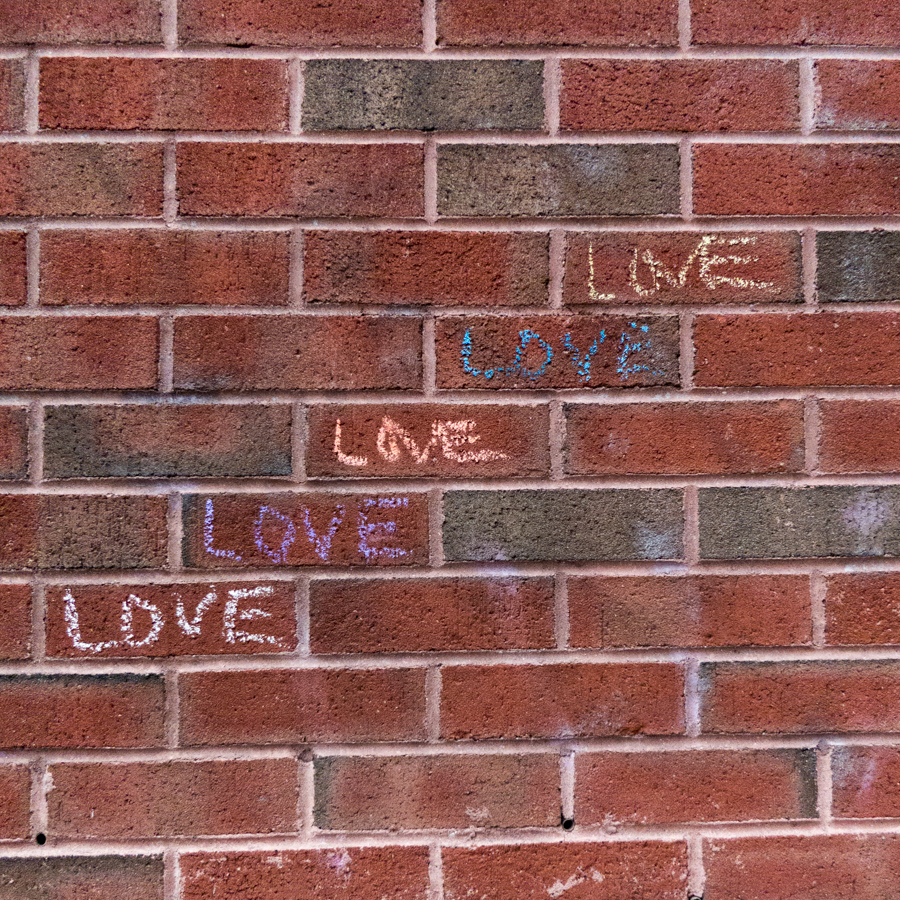 LOVE
LOVE
LOVE
LOVE
LOVE